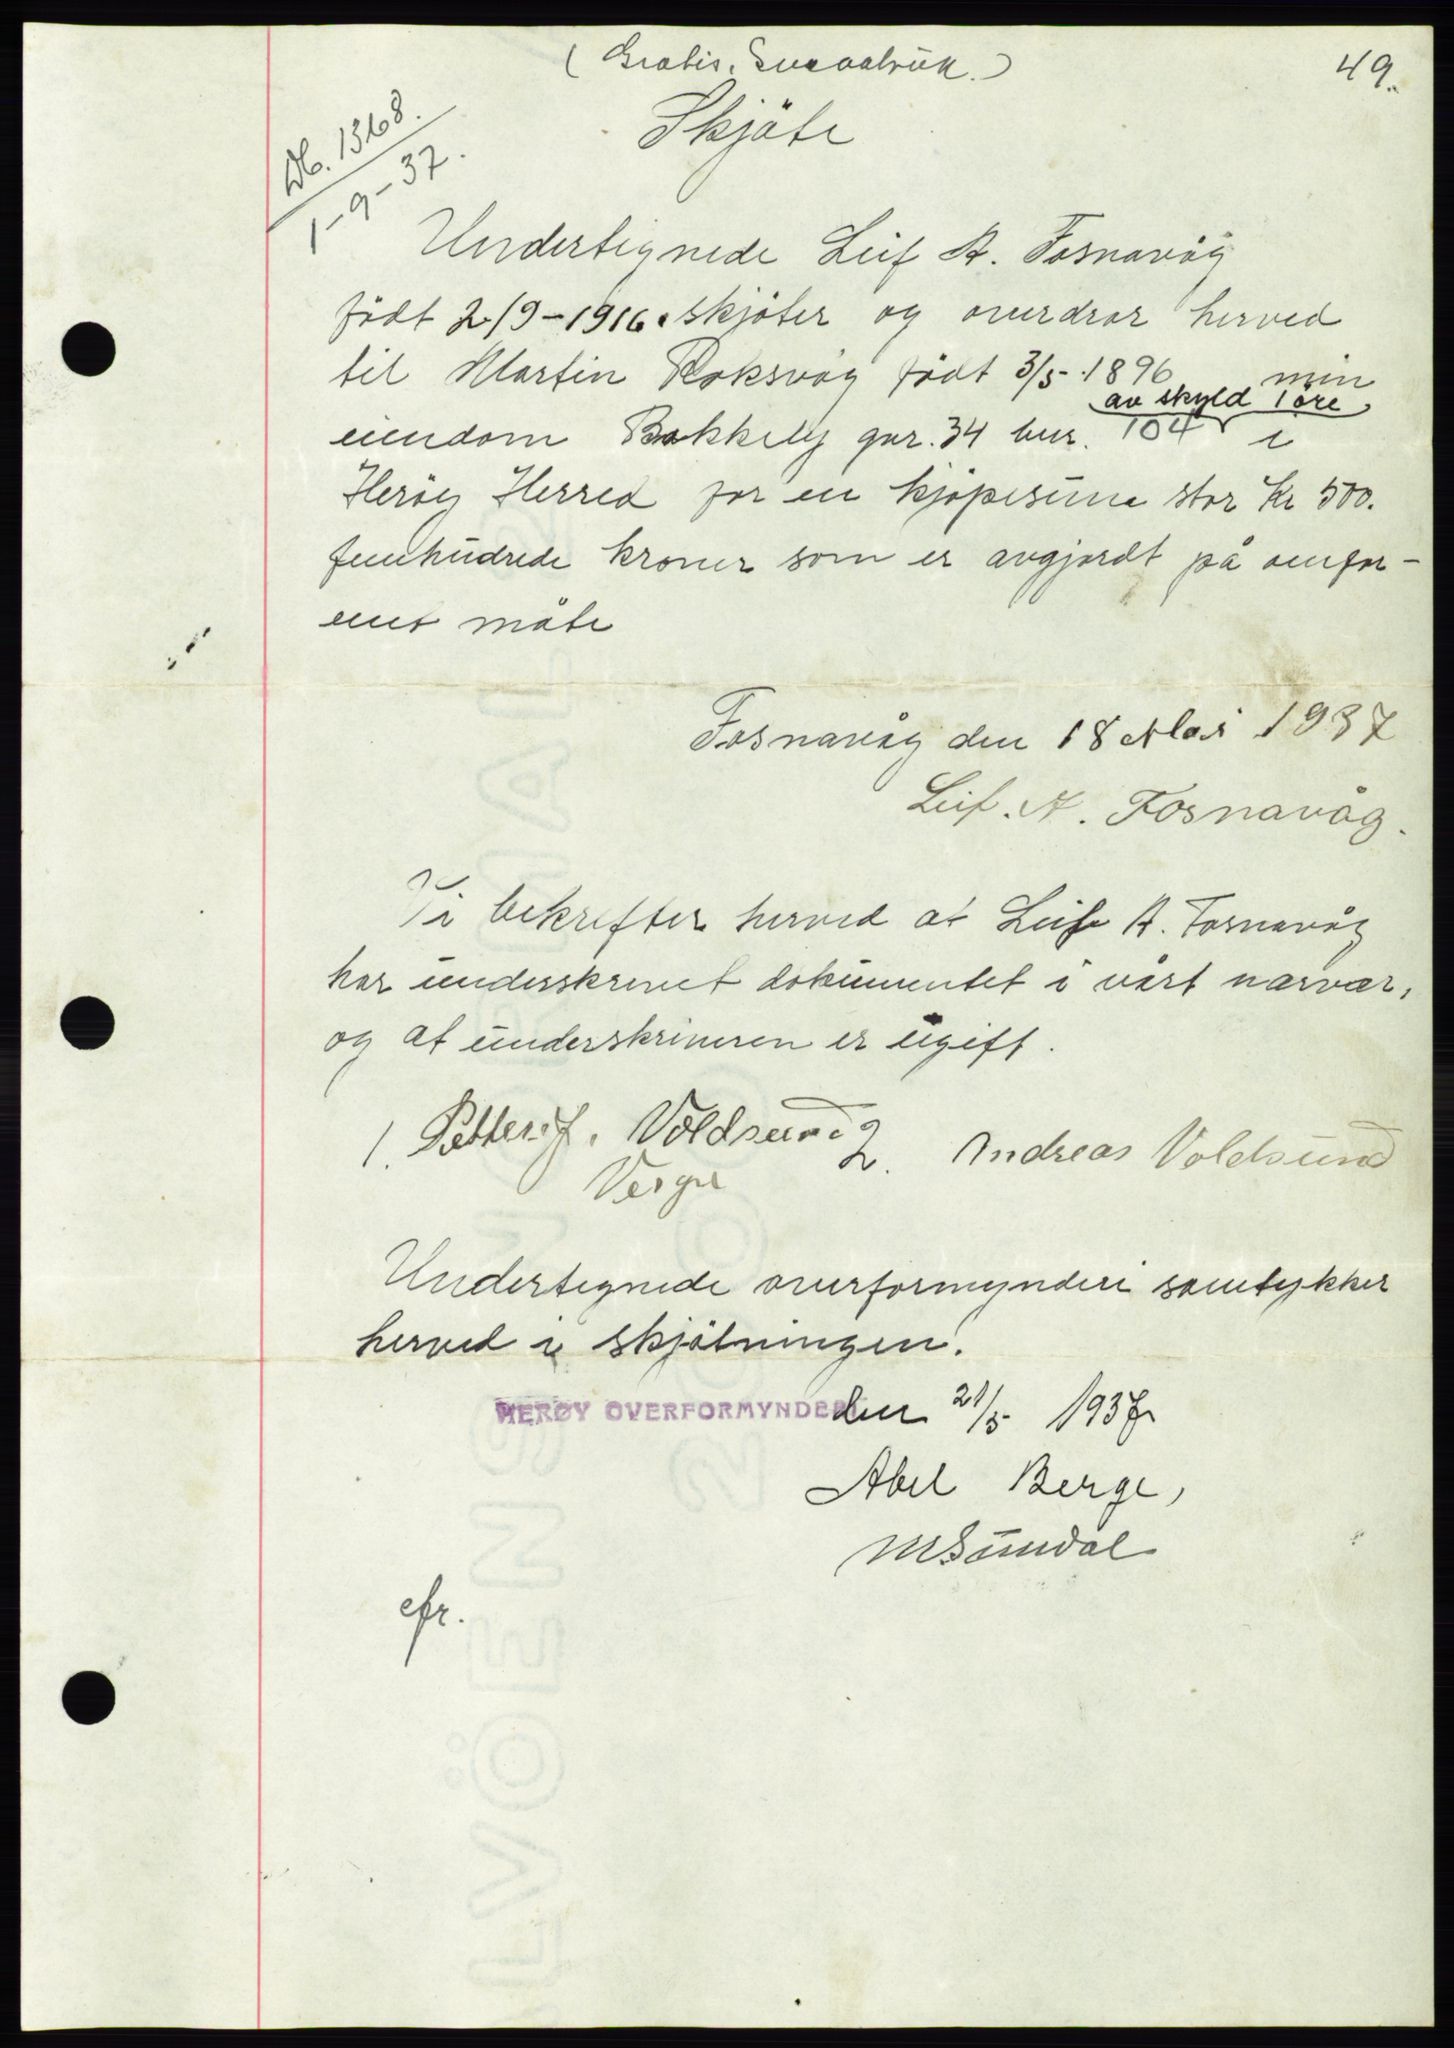 (Gratis. Småbruk.)
49.
Skjöte
Db. 1368.
1-9-37.
Undertegnede Leif A. Fosnavåg
födt 2/9-1916. skjöter og overdrar herved
til Martin Roksvåg födt 3/5-1896 min
av skyld 1 öre
eiendom Bakkely gnr. 34 bnr. 104 i
Heröy Herred for en kjöpesum stor Kr 500.
femhundrede kroner som er avgjordt på omfor-
enet måte
Fosnavåg den 18 Mai 1937
Leif. A. Fosnavåg.
Vi bekrefter herved at Leif A. Fosnavåg
har underskrevet dokumentet i vårt nærvær,
og at underskriveren er ugift.
1. Petter J. Voldsund 2. Andreas Voldsund
Verge
Undertegnede overformynderi samtykker
herved i skjötningen.
HERØY OVERFORMYNDERI den 21/5 1937
Abel Berge,
M Sundal
cfr.